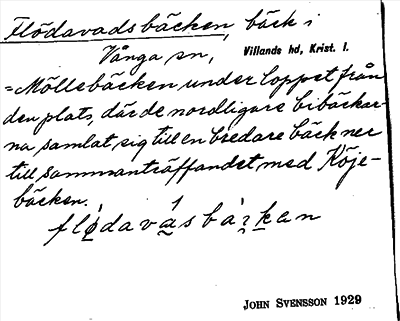 Flödavadsbäcken, bäck i
Vånga sn, Villands hd, Krist. l.
=Möllebäcken under loppet från
den plats, där de nordligare bibäckar-
na samlat sig till en bredare bäck ner
till sammanträffandet med Köje-
bäcken.
JOHN SVENSSON 1929